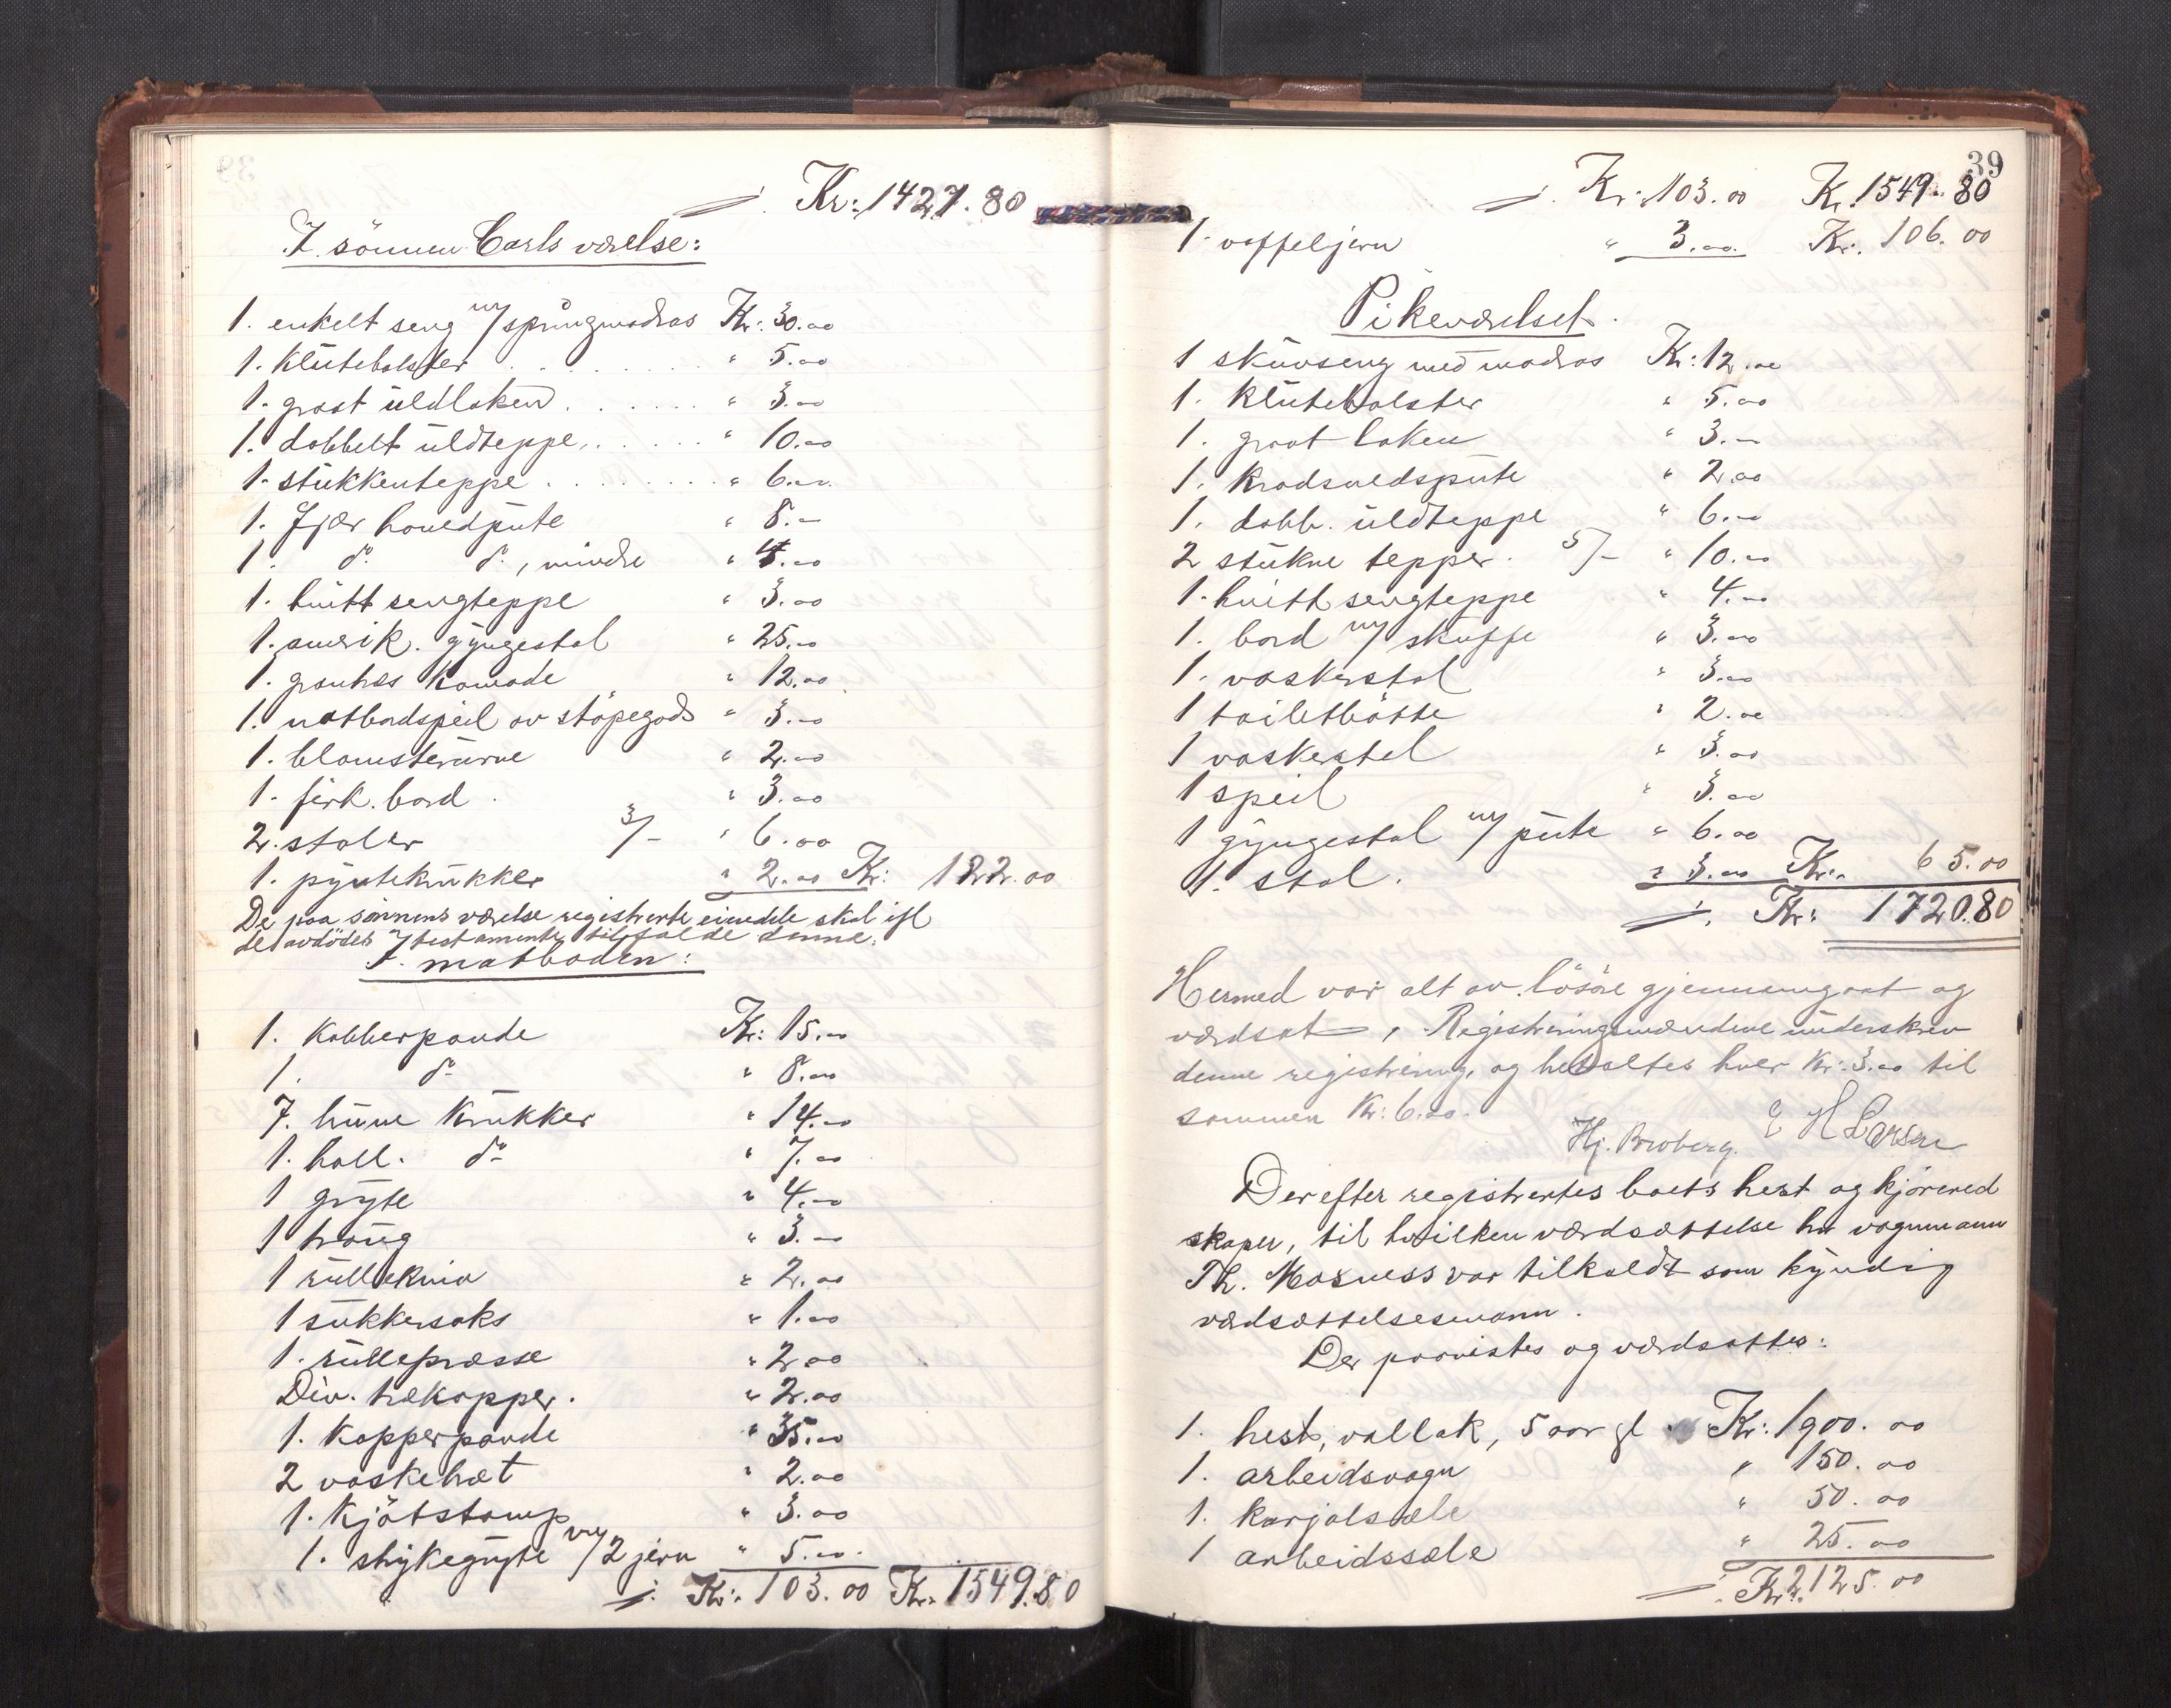 Kr: 1427.80
I sönnen Carls værelse:
1. enkelt seng m/ springmadras Kr: 30.00
1. Klutebolster " 5.00
1. graat uldlaken " 3.00
1. dobbelt uldteppe " 10.00
1. stukkenteppe " 6.00
1. Fjær hovedpute " 8.00
1. do do, mindre " 4.00
1. hvitt sengteppe " 3.00
1. amrik. gyngestol " 25.00
1. komode " 12.00
1. natbordspeil av stöpegods " 3.00
1. blomsterurne " 2.00
1. firk. bord " 3.00
2. stoler 3/- " 6.00
1. pyntekrukker " 2.00 Kr: 122.00
De paa sönnens værelse registrerte eiendele skal ifl
de avdödes testamente tilfalde denne.
I matboden:
1. Kobberpande Kr: 15.00
1. do " 8.00
7. brune Krukker " 14.00
1. holl. do " 7.00
1 gryte " 4.00
1 traug " 3.00
1 rullekniv " 2.00
1 sukkersaks " 1.00
1. rullepresse " 2.00
Div. trækopper. " 2.00
1. Kopperpande " 35.00
2 vasketræt " 2.00
1. Kjötstamp " 3.00
1. strykegryte m/ 2 jern " 5.00
Kr: 103.00 Kr. 1549.80
39
Kr: 103.00 Kr. 1549.80
1. vaffeljern " 3.00 Kr. 106.00
Pikeværelset.
1 skuvseng med madras Kr: 12.00
1. Klutebolster " 5.00
1. graat laken " 3.00
1. Krodsuldspute " 2.00
1. dobb. uldteppe " 6.00
2 stukne tepper. 5/- " 10.00
1. hvitt sengteppe " 4.00
1. bord m/ skuffe " 3.00
1. vaskerstol " 3.00
1 toiletbötte " 2.00
1 vaskestel " 3.00
1 speil " 3.00
1 gyngestol m/ pute " 6.00
1. stol. " 3.00 Kr. 65.00
Kr: 1720.80
Hermed var alt av lösöre gjennemgaat og
værdsat, Registreringsmændene underskrev
denne registrering, og betaltes hver Kr: 3.00 til
sammen Kr: 6.00.
Hj. Broberg. E H Larsen
Derefter registrertes boets hest og kjörered
skaper, til hvilken værdsættelse hr vognmann
Th. Masness var tilkaldt som kyndig
vædsættelsesmann.
Der paavistes og værdsattes:
1. hest, vallak, 5 aar gl Kr: 1900.00
1. arbeidsvogn " 150.00
1. karjolsæle " 50.00
1 arbeidssæle " 25.00
Kr. 2125.00